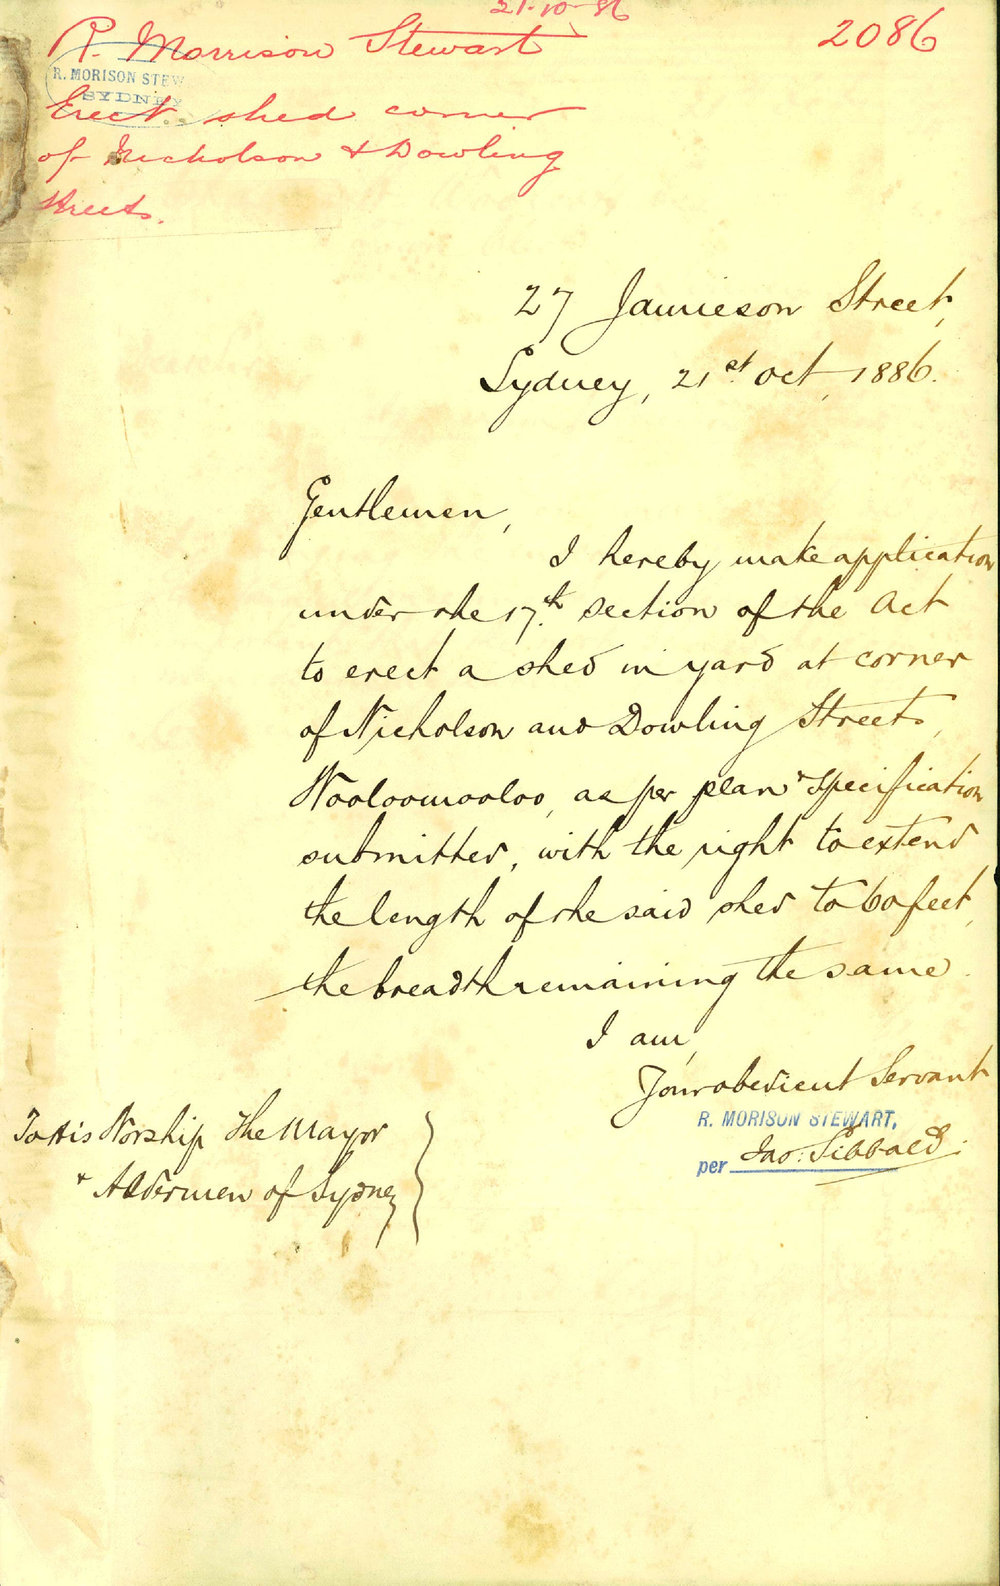 21-10-86
R. Morrison Stewart
2086
R. MORISON STEW
SYDNEY
Erect shed corner
of Nicholson & Dowling
Streets.
27 Jamieson Street,
Sydney, 21st. Oct, 1886.
Gentlemen,
I hereby make application
under the 17th. section of the Act
to erect a shed in yard at corner
of Nicholson and Dowling Streets,
Wooloomooloo, as per plan & specification
submitted, with the right to extend
the length of the said shed to 60 feet,
the breadth remaining the same.
I am,
Your obedient Servant
R. MORISON STEWART,
per Jno: Sibbald.
To His Worship The Mayor
& Aldermen of Sydney